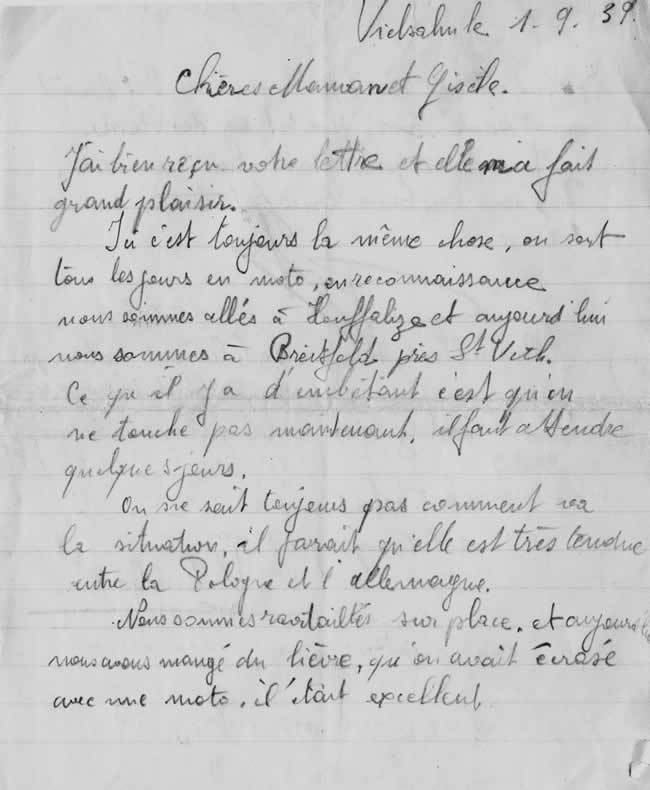 Vielsalm le 1-9.39.
Chères Maman et Gisèle.
J'ai bien reçu votre lettre et elle m'a fait
grand plaisir.
Ici c'est toujours la même chose, on sort
tous les jours en moto, en reconnaissance
nous sommes allés à Houffalize et aujourd'hui
nous sommes à Breitfeld près St Vith.
Ce qu'il y a d'embêtant c'est qu'on
ne touche pas maintenant, il faut attendre
quelques jours.
On ne sait toujours pas comment va
la situation, il parait qu'elle est très tendue
entre la Pologne et l'allemagne.
Nous sommes ravitaillés sur place, et aujourd'hui
nous avons mangé du lièvre, qu'on avait écrasé
avec une moto, il était excellent